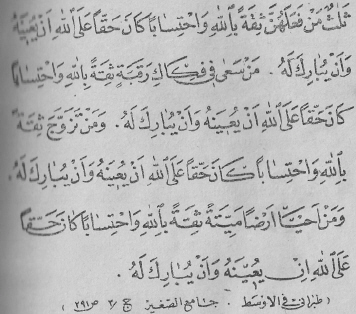 ثَلٰثٌ مَنْ فَعَلَهُنَّ ثِقَةً بِاللّٰهِ وَاحْتِسَابًا كَانَ حَقًّا عَلَى اللّٰهِ اَنْ يُعِيْنَهُ
وَاَنْ يُبَارِكَ لَهُ . مَنْ سَعٰى فِيْ فِكَاكِ رَقَبَةٍ ثِقَةً بِاللّٰهِ وَاحْتِسَابًا
كَانَ حَقًّا عَلَى اللّٰهِ اَنْ يُعِيْنَهُ وَاَنْ يُبَارِكَ لَهُ. وَمَنْ تَزَوَّجَ ثِقَةً
بِاللّٰهِ وَاحْتِسَابًا كَانَ حَقًّا عَلَى اللّٰهِ اَنْ يُعِيْنَهُ وَاَنْ يُبَارِكَ لَهُ.
وَمَنْ اَحْيَا اَرْضًا مَيِّتَةً ثِقَةً بِاللّٰهِ وَاحْتِسَابًا كَانَ حَقًّا
عَلَى اللّٰهِ اَنْ يُعِيْنَهُ وَاَنْ يُبَارِكَ لَهُ .
( طبرانى فى الاوسط . جامع الصغير ج /٣ ص ٢٩١ )